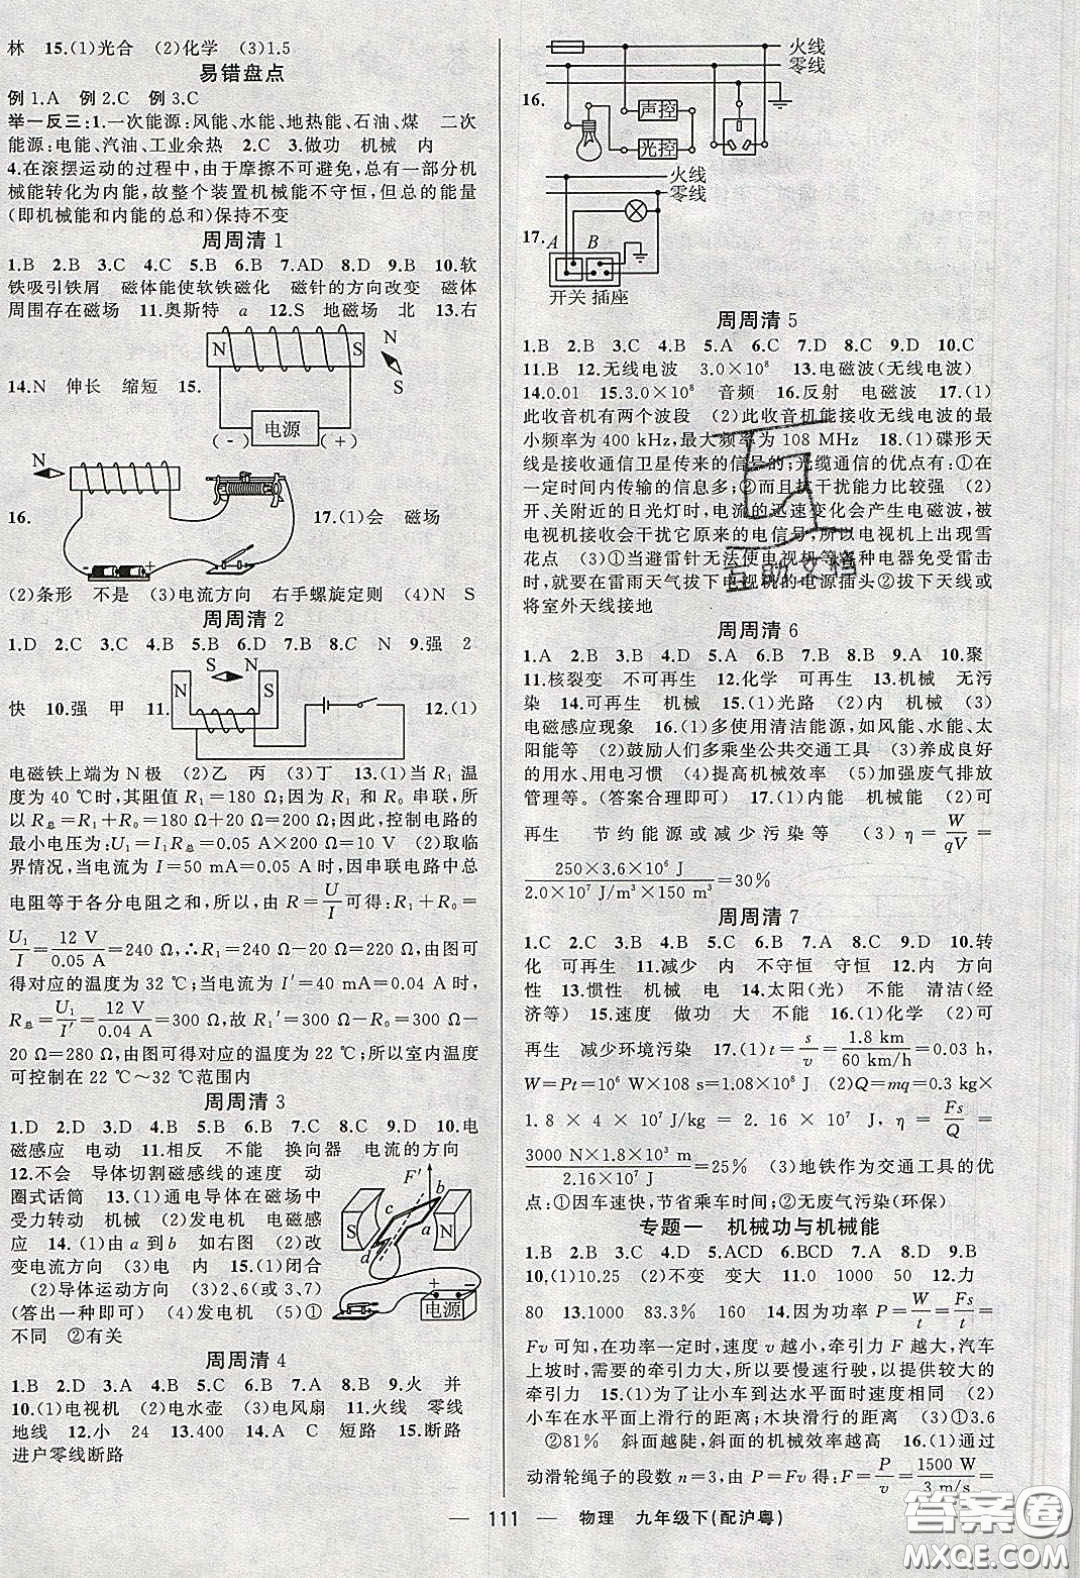 林　15.(1)光合　(2)化学　(3)1.5
易错盘点
例 1.A　例 2.C　例 3.C
举一反三:1.一次能源:风能、水能、地热能、石油、煤　二次
能源:电能、汽油、工业余热　2.C　3.做功　机械　内
4.在滚摆运动的过程中,由于摩擦不可避免,总有一部分机
械能转化为内能,故整个装置机械能不守恒,但总的能量
(即机械能和内能的总和)保持不变
周周清 1
1.B　2.B　3.C　4.C　5.B　6.B　7.AD　8.D　9.B　10.软
铁吸引铁屑　磁体能使软铁磁化　磁针的方向改变　磁体
周围存在磁场　11.奥斯特　a　12.S　地磁场　北　13.右
N　S　N　S
14.N　伸长　缩短　15.
(-)　电源　(+)
N
16.
17.(1)会　磁场
- +
(2)条形　不是　(3)电流方向　右手螺旋定则　(4)N　S
周周清 2
1.D　2.C　3.C　4.D　5.B　6.D　7.B　8.C　N　9.强　2
S　N
N　S
快　10.强　甲　11.
12.(1)
电磁铁上端为 N 极　(2)乙　丙　(3)丁　13.(1)当 R₁ 温
度为 40 ℃时,其阻值 R₁=180 Ω;因为 R₁ 和 R₀ 串联,所
以 R总=R₁+R₀=180 Ω+20 Ω=200 Ω,因此,控制电路的
最小电压为:U₁=I₁R总=0.05 A×200 Ω=10 V　(2)取临
界情况,当电流为 I=50 mA=0.05 A 时,因串联电路中总
电阻等于各分电阻之和,所以,由 R=U/I 可得:R₁+R₀=
U₁/I=12 V/0.05 A=240 Ω,∴R₁=240 Ω-20 Ω=220 Ω,由图可
得对应的温度为 32 ℃;当电流为 I′=40 mA=0.04 A 时,
R总=U₁/I′=12 V/0.04 A=300 Ω,故 R₁′=300 Ω-R₀=300 Ω-
20 Ω=280 Ω,由图可得对应的温度为 22 ℃;所以室内温度
可控制在 22 ℃~32 ℃范围内
周周清 3
1.D　2.D　3.A　4.A　5.B　6.B　7.C　8.C　9.D　10.电
磁感应　电动　11.相反　不能　换向器　电流的方向
12.不会　导体切割磁感线的速度　动
圈式话筒　13.(1)通电导体在磁场中
受力转动　机械　(2)发电机　电磁感
应　14.(1)由 a 到 b　如右图　(2)改
变电流方向　(3)电　内　15.(1)闭合
(2)导体运动方向　(3)2、6(或 3、7)
(答出一种即可)　(4)发电机　(5)①
不同　②有关
F′
b
c
S　a　N
d
- +
电源
周周清 4
1.B　2.D　3.A　4.B　5.C　6.D　7.A　8.B　9.火　并
10.(1)电视机　(2)电水壶　(3)电风扇　11.火线　零线
地线　12.小　24　13.400　14.A　C　短路　15.断路
进户零线断路
火线
零线
16.
声控
光控
火线
零线
17. A B
开关 插座
周周清 5
1.B　2.B　3.C　4.B　5.A　6.C　7.D　8.C　9.D　10.C
11.B　12.无线电波　3.0×10⁸　13.电磁波(无线电波)
14.0.01　15.3.0×10⁸　音频　16.反射　电磁波　17.(1)
此收音机有两个波段　(2)此收音机能接收无线电波的最
小频率为 400 kHz,最大频率为 108 MHz　18.(1)碟形天
线是接收通信卫星传来的信号的;光缆通信的优点有:①在
一定时间内传输的信息多;②而且抗干扰能力比较强　(2)
开、关附近的日光灯时,电流的迅速变化会产生电磁波,被
电视机接收会干扰它原来的电信号,所以电视机上出现雪
花点　(3)①当避雷针无法使电视机等各种电器免受雷击
时,在雷雨天气拔下电视机的电源插头②拔下天线或
将室外天线接地
互助文档
周周清 6
1.A　2.B　3.C　4.B　5.D　6.B　7.D　8.A　9.A　10.聚
11.核裂变　不可再生　12.化学　可再生　13.机械　无污
染　14.可再生　机械　15.(1)光路　(2)内　机械　(3)
电磁感应现象　16.(1)多使用清洁能源,如风能、水能、太
阳能等　(2)鼓励人们多乘坐公共交通工具　(3)养成良好
的用水、用电习惯　(4)提高机械效率　(5)加强废气排放
管理等。(答案合理即可)　17.(1)内能　机械能　(2)可
再生　节约能源或减少污染等　(3)η=W/qV=
250×3.6×10⁶ J/2.0×10⁷ J/m³×150 m³=30%
周周清 7
1.C　2.C　3.B　4.B　5.C　6.B　7.A　8.C　9.D　10.转
化　可再生　11.减少　内　不守恒　守恒　12.内　方向
性　13.惯性　机械　电　14.太阳(光)　不能　清洁(经
济等)　15.速度　做功　大　不能　16.(1)化学　(2)可
再生　减少环境污染　17.(1)t=s/v=1.8 km/60 km/h=0.03 h,
W=Pt=10⁶ W×108 s=1.08×10⁸ J　(2)Q=mq=0.3 kg×
1.8×4×10⁷ J/kg=2.16×10⁷ J,η=Fs/Q=
3000 N×1.8×10³ m/2.16×10⁷ J=25%　(3)地铁作为交通工具的优
点:①因车速快,节省乘车时间;②无废气污染(环保)
专题一　机械功与机械能
1.B　2.B　3.C　4.D　5.ACD　6.BCD　7.A　8.D　9.B
10.(1)10.25　(2)不变　变大　11.0　1000　50　12.力
80　13.1000　83.3%　160　14.因为功率 P=W/t=Fs/t=
Fv 可知,在功率一定时,速度 v 越小,牵引力 F 越大,汽车
上坡时,需要的牵引力大,所以要慢速行驶,以提供较大的
牵引力　15.(1)为了让小车到达水平面时速度相同　(2)
小车在水平面上滑行的距离;木块滑行的距离　(3)①3.6
②81%　斜面越陡,斜面的机械效率越高　16.(1)通过
动滑轮绳子的段数 n=3,由 P=Fv 得:F=P/v=1500 W/3 m/s=
— 111 —　物理　九年级下(配沪粤)
答案圈
MXQE.COM